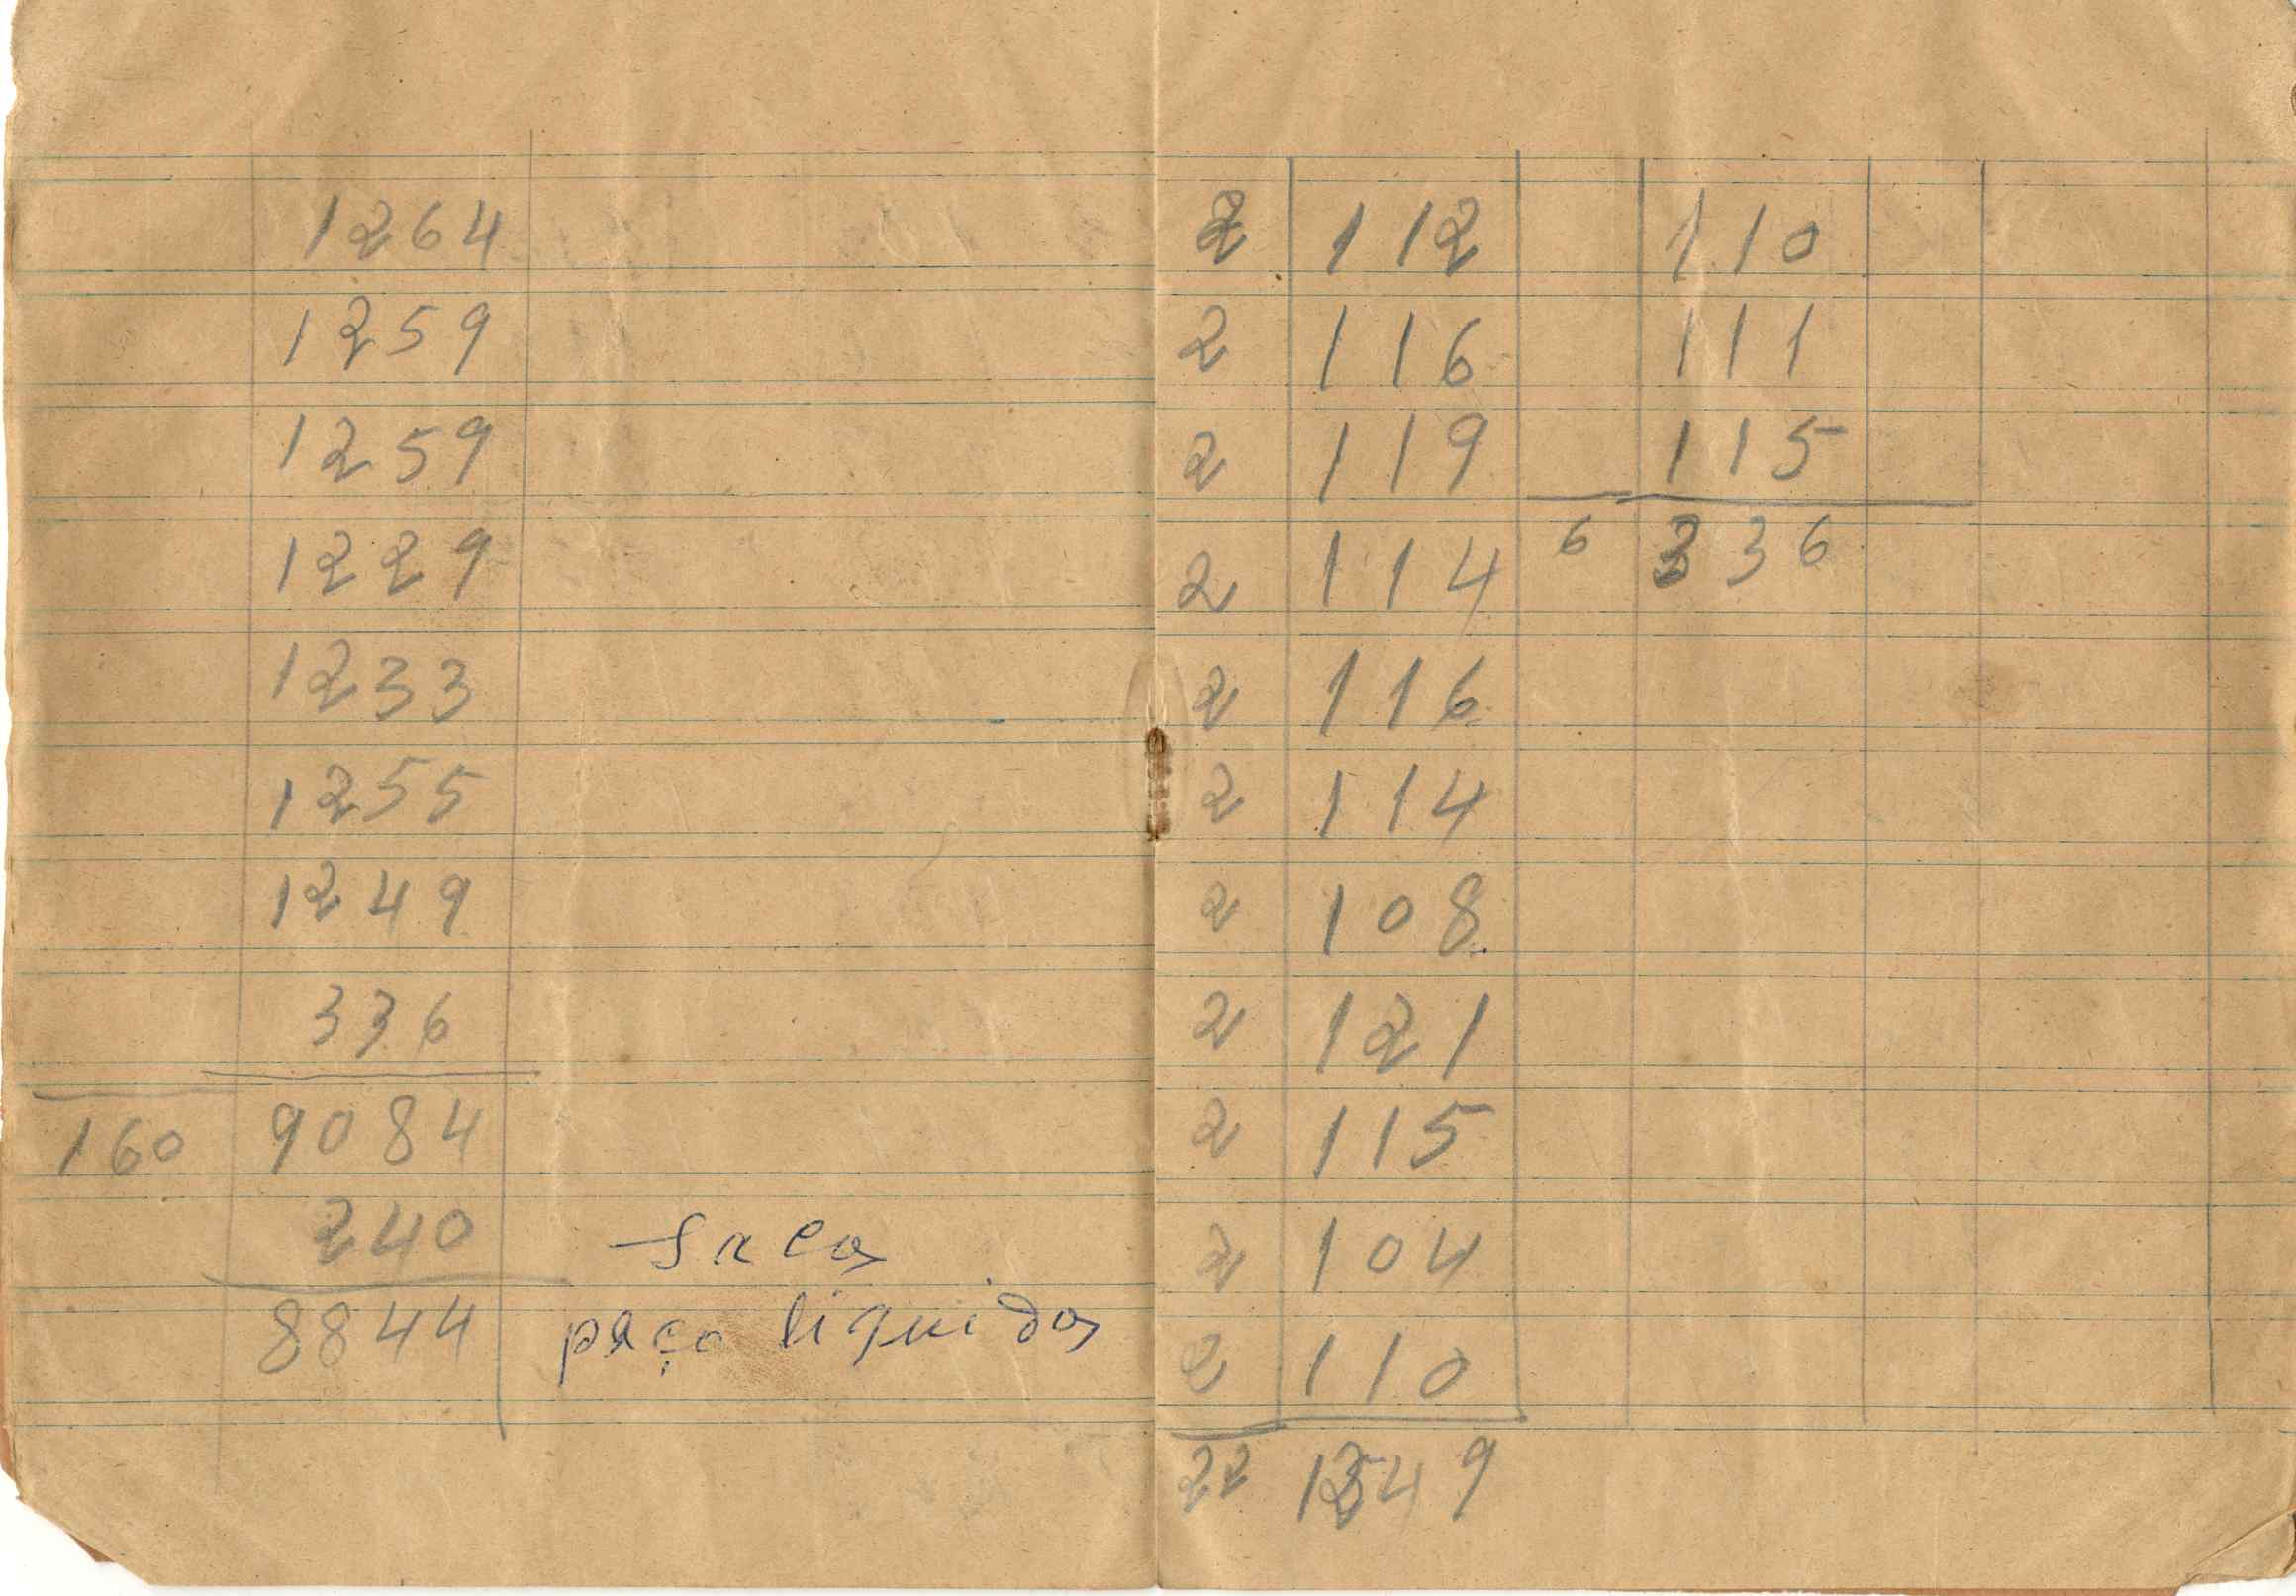 1264
1259
1259
1229
1233
1255
1249
336
160 9084
240 sacos
8844 peço liquidos
2 112 110
2 116 111
2 119 115
2 114 6 336
2 116
2 114
2 108
2 121
2 115
2 104
2 110
22 1249